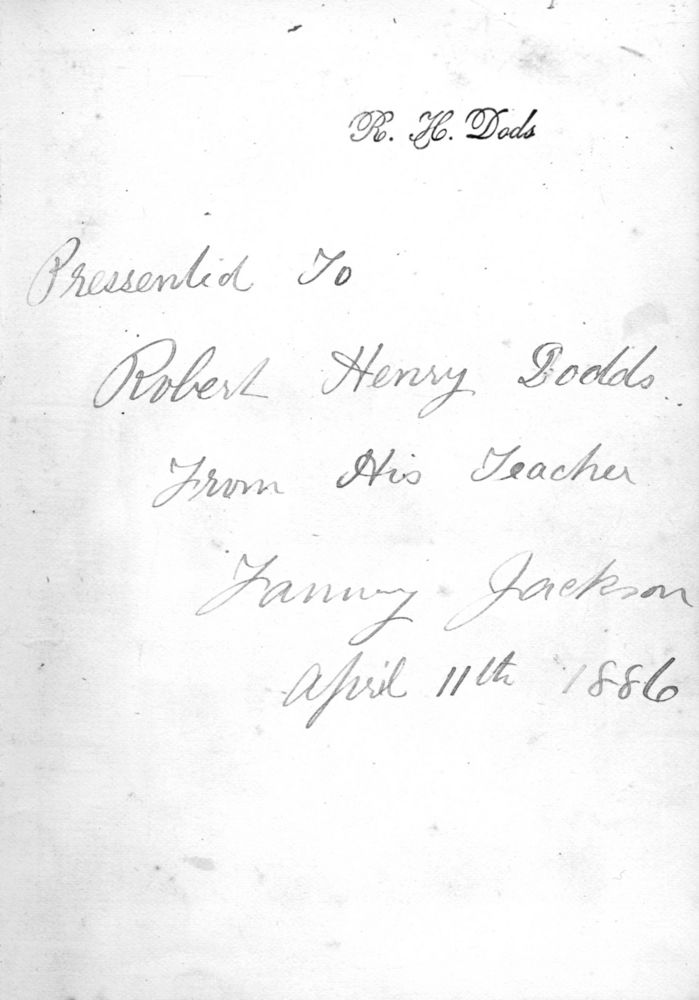 R. H. Dods
Pressented To
Robert Henry Dodds
From His Teacher
Fanny Jackson
April 11th 1886